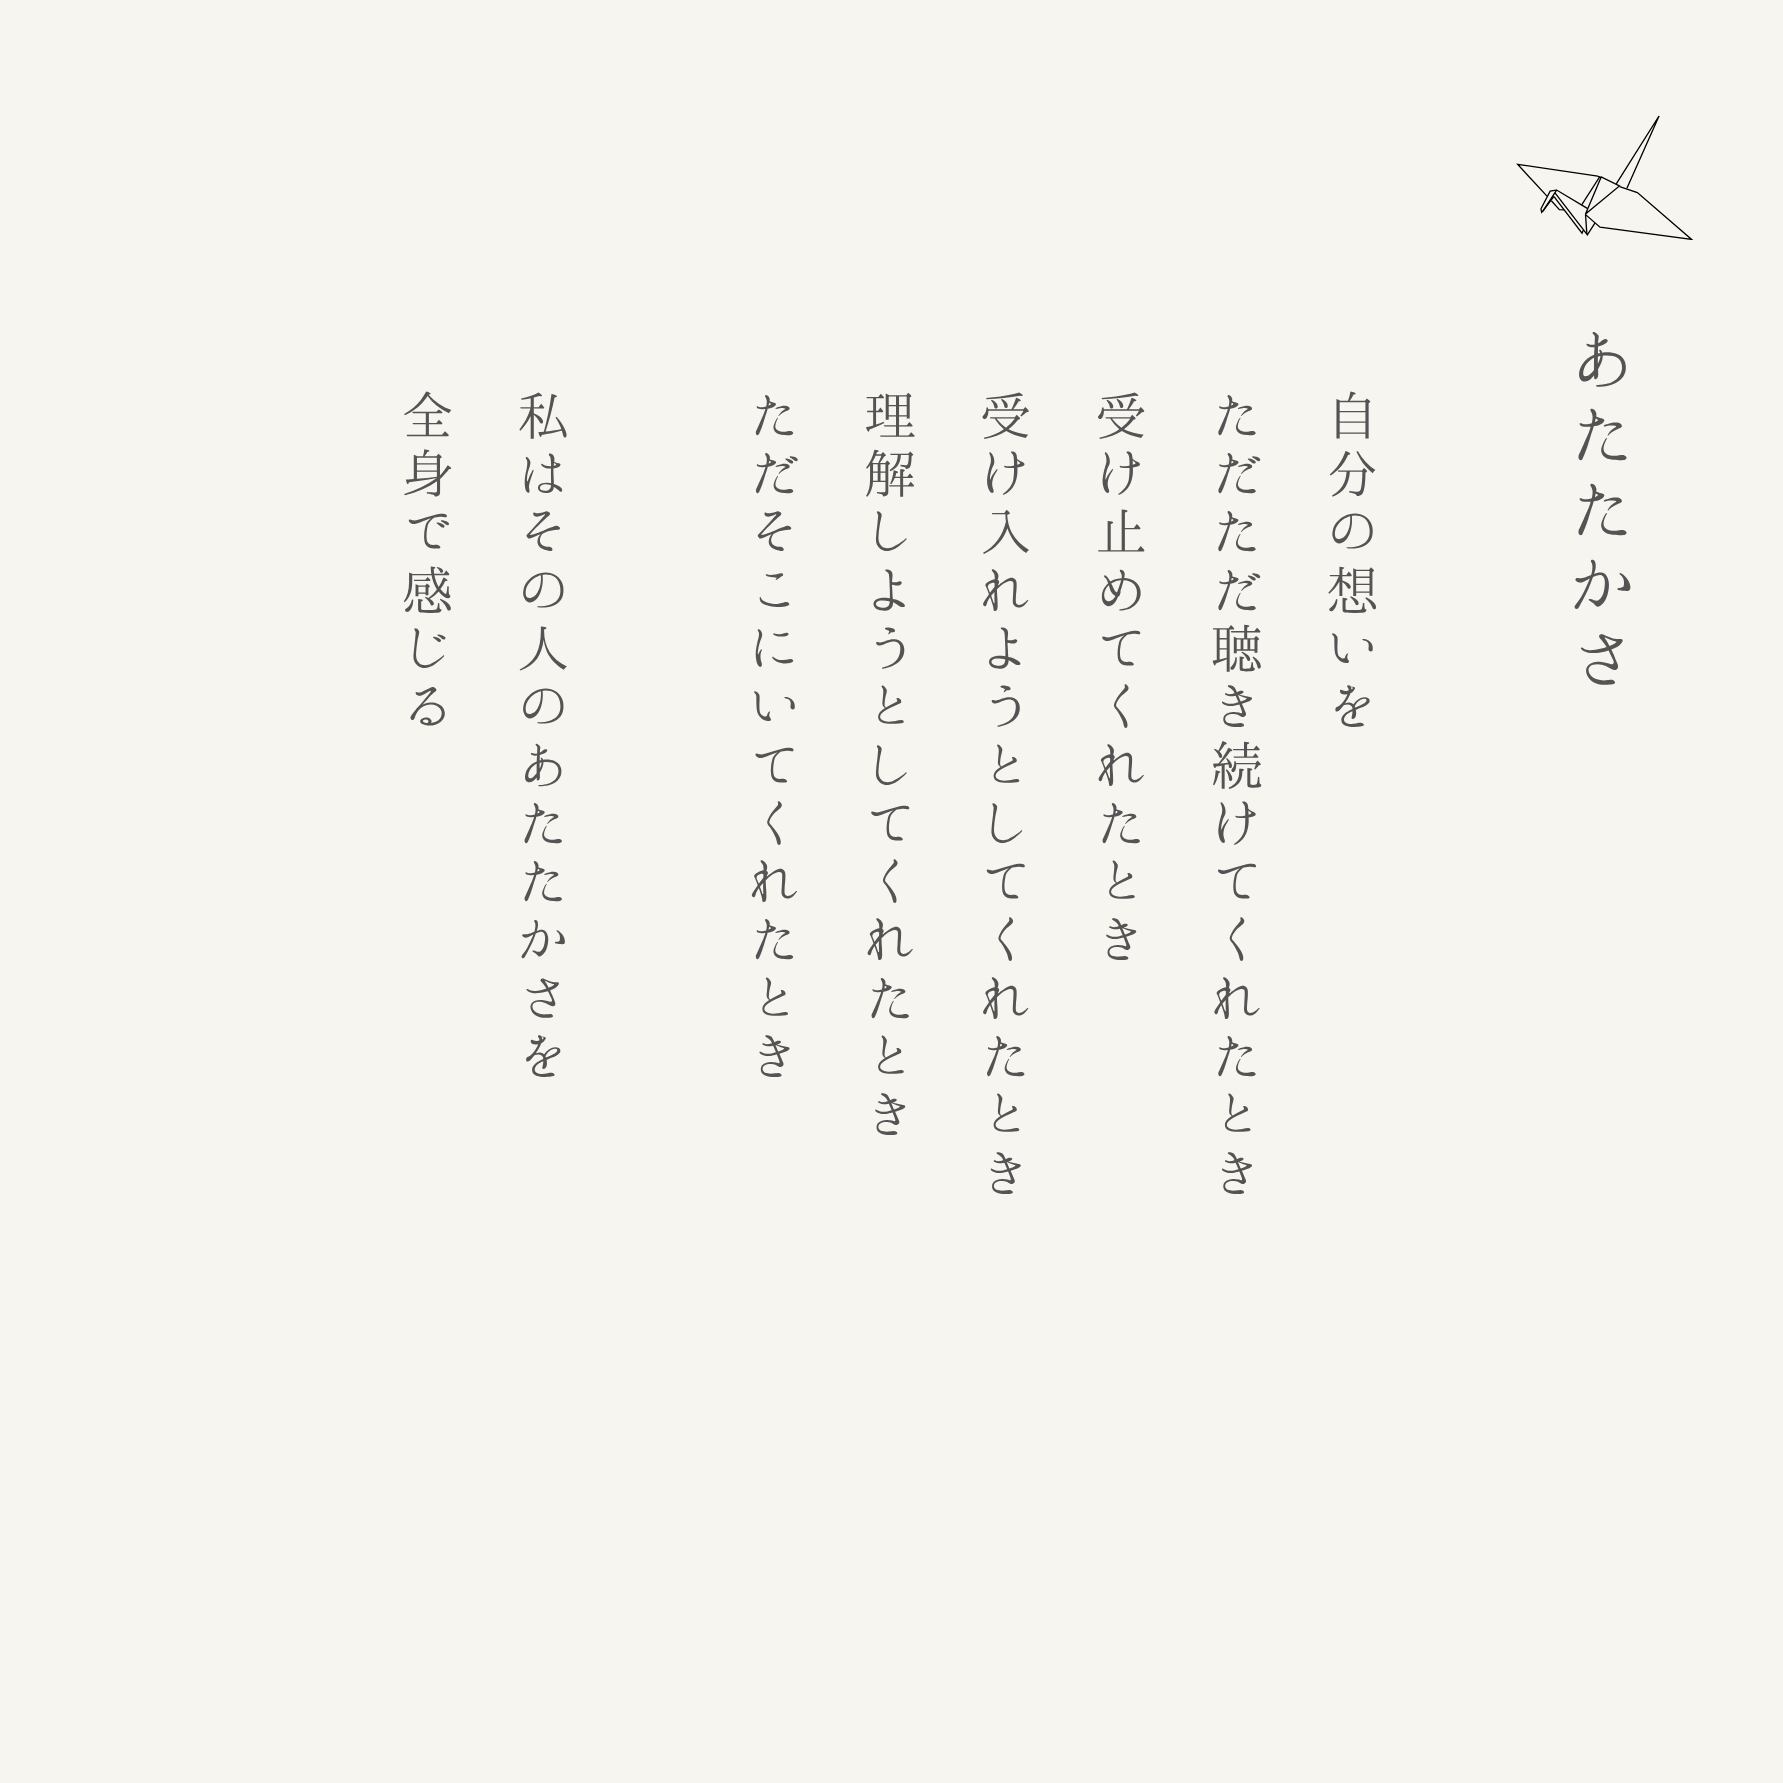 あたたかさ
自分の想いを
ただただ聴き続けてくれたとき
受け止めてくれたとき
受け入れようとしてくれたとき
理解しようとしてくれたとき
ただそこにいてくれたとき
私はその人のあたたかさを
全身で感じる